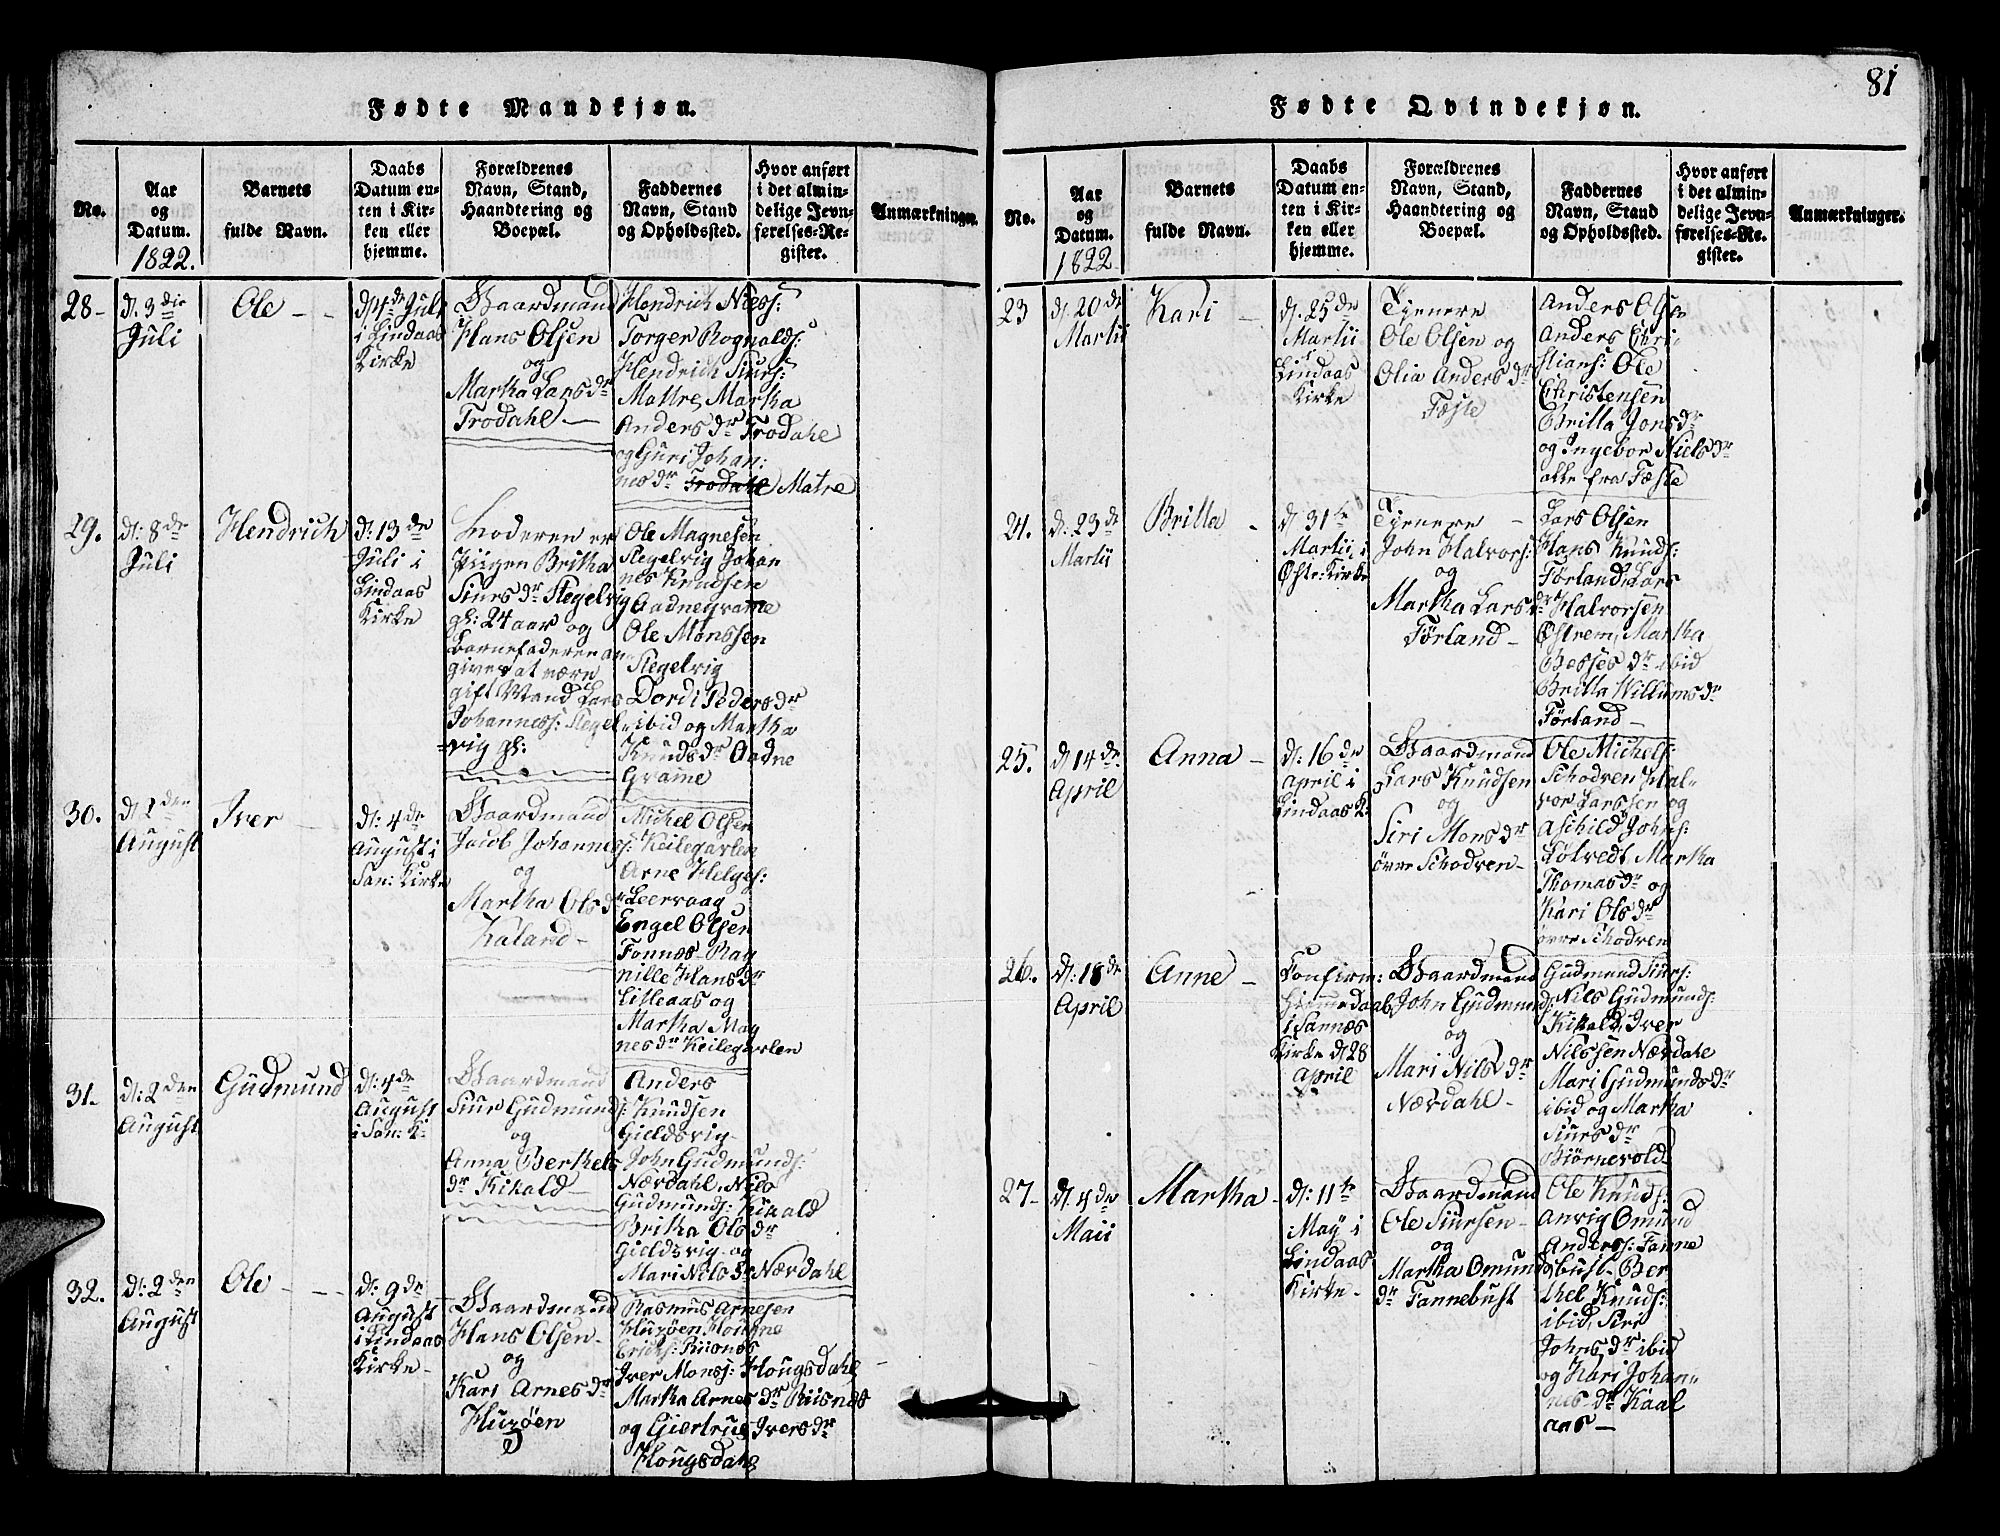 Fødte Mandkjøn.
No.
Aar
og
Datum.
1822.
Barnets
fulde Navn.
Daabs
Datum en-
ten i Kir-
ken eller
hjemme.
Forældrenes
Navn, Stand,
Haandtering og
Boepæl.
Faddernes
Navn, Stand
og Opholdssted.
Hvor anført
i det almin-
delige Jevn-
førelses-Re-
gister.
Anmærkninger.
28-
d: 3die
Juli
Ole - -
d. 4de Juli
i Lindaas
Kirke
Gaardmand
Hans Olsen
og
Martha Lars dr
Trodahl -
Hendrich Niels:
Torger Rognalds:
Hendrich Siurs:
Mattre, Martha
Anders dr Trodahl
og Guri Johan:
nes dr Trodahl Matre
29.
d: 8de
Juli
Hendrich
d: 13de
Juli i
Lindaas
Kirke
Moderen er
Piigen Britha
Siurs dr Stegelvig
gl: 24 aar og
Barnefaderen an-
gives at være
gift Mand Lars
Johanness: Stegel-
vig gl:
Ole Magnesen
Stegelvig Johan
nes Knudsen
Aadnegrame
Ole Monssen
Stegelvig
Dordi Peders dr
ibid og Martha
Knuds dr Aadne
Grame
30.
d 1den
August
Iver -
d: 4de
August i
San: Kirke
Gaardmand
Jacob Johannes
og
Martha Ols dr
Kaland -
Michel Olsen
Keilegavlen
Arne Helges:
Leervaag
Engel Olsen
Fonnes Rag
nille Hans dr
Lilleaas og
Martha Mag
nes dr Keilegavlen
31.
d: 2den
August
Gudmund
d: 4de
August
i San: K:
Gaardmand
Siur Gudmunds:
og
Anna Berthels
dr Kikald -
Anders
Knudsen
Gieldsvig
John Gudmunds:
Nævdahl, Nils
Gudmunds: Kikald
Britha Ols dr
Gieldsvig og
Mari Nils dr Nævdahl
32.
d: 2den
August
Ole - -
d: 9de
August
i Lindaas
Kirke -
Gaardmand
Hans Olsen
og
Kari Arnes dr
Huzøen
Rasmus Arnesen
Huzøen,
Erichs: Riisnes
Iver Monss: Hougsdahl
Martha Arnes dr Riisnes
og Giertrue Ivers dr
Hougsdahl
81
Fødte Qvindekjøn.
No.
Aar
og
Datum.
1822
Barnets
fulde Navn.
Daabs
Datum en-
ten i Kir-
ken eller
hjemme.
Forældrenes
Navn, Stand,
Haandtering og
Boepæl.
Faddernes
Navn, Stand
og Opholdssted.
Hvor anført
i det almin-
delige Jevn-
førelses-Re-
gister.
Anmærkninger.
23
d. 20de
Martii
Kari -
d. 25de
Martii
i Lindaas
Kirke
Tjenere
Ole Olsen og
Olia Anders dr
Fæste
Anders Olsen
Anders Chri
stians: Ole
Christensen
Britta Jons dr
og Ingebor Niels dr
alle fra Fæste
24.
d: 23de
Martii
Britta -
d 31te
Martii i
Østr: Kirke
Tjenere -
John Halvors:
og
Martha Lars dr
Førland -
Lars Olsen
Hans Knuds:
Førland, Lars
Halvorsen
Østrem, Martha
Besses dr ibid
Britta Willums dr
Førland -
25.
d 14de
April
Anna -
d: 16de
April i
Lindaas K:
Gaardmand
Lars Knudsen
og
Siri Mons dr
øvre Schodven -
Ole Michels:
Schodven Hal-
vor Larssen og
Aschild Johns:
Tølvedt, Martha
Thomas dr og
Kari Ols dr
øvre Schodven
26.
d: 18de
April
Anne -
Confirm:
Hjemmedaab
i Sannæs
Kirke d 28
April
Gaardmand
John Gudmunds:
og
Mari Nils dr
Nævdahl -
Gudmund Siurs:
Nils Gudmunds:
Kikald, Iver
Nilssen Nævdahl
Mari Gudmunds dr
ibid og Martha
Siurs dr
Biørnevold
27-
d. 4de
Maii
Martha -
d: 11te
May i
Lindaas
Kirke -
Gaardmand
Ole Siursen -
og
Martha Omunds
dr Fannebust
Ole Knuds:
Anvig Omund
Anderss: Fanne
bust - Ber
thel Knuds:
ibid, Siri
Johns dr ibid
og Kari Johan-
nes dr Kaal
aas -